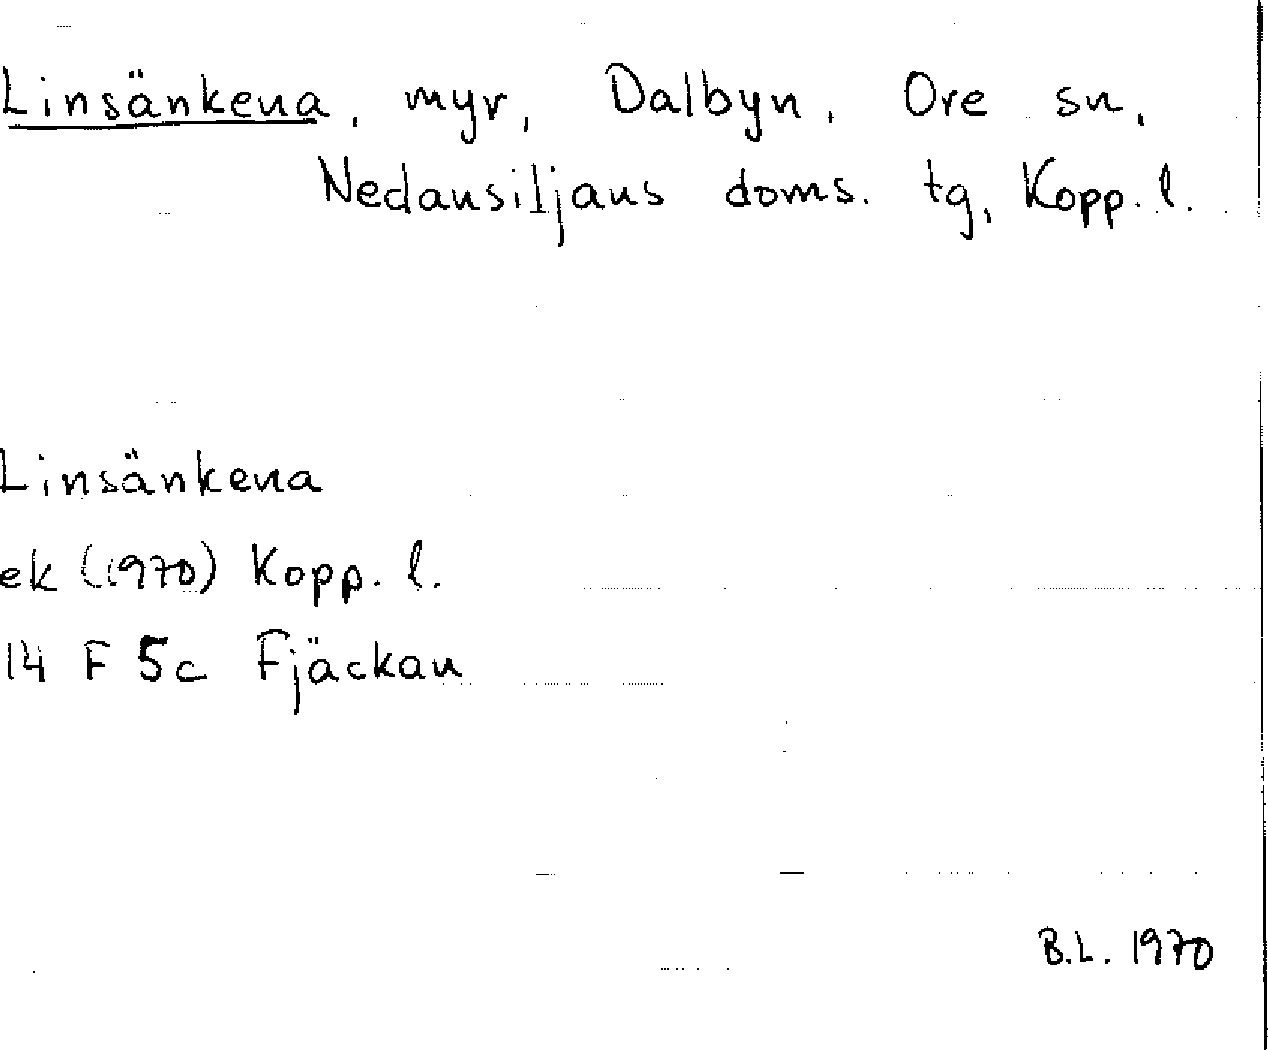 Linsänkena, myr, Dalbyn, Ore sn,
Nedansiljans doms. tg, Kopp. l.
Linsänkena
ek (1970) Kopp. l.
14 F 5c Fjäckan
B.L. 1970